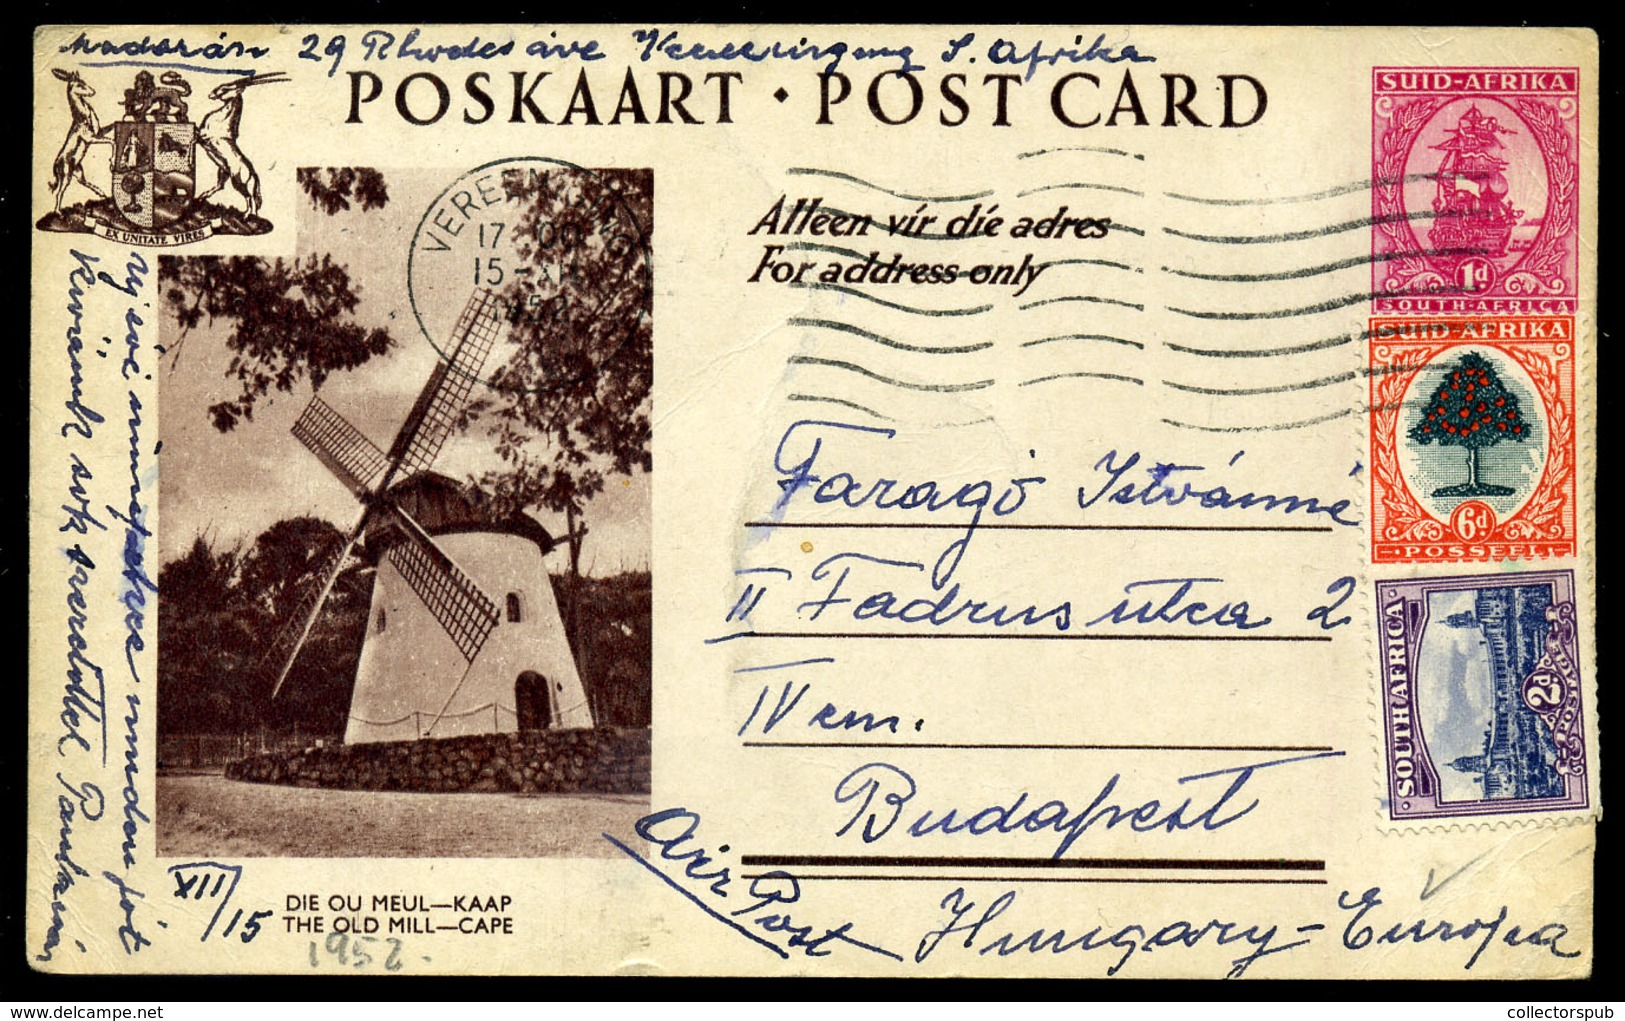 29 Rhodes ave Vereeniging S. Afrika
POSKAART · POST CARD
SUID-AFRIKA
1d
SOUTH-AFRICA
EX UNITATE VIRES
VEREENIGING
17 00
15-XII
1952
Alleen vir die adres
For address only
SUID-AFRIKA
6d
POSSEEL
SOUTH AFRICA
2d
POSTAGE
Faragó Istvánné
II Fadrus utca 2
IV em.
Budapest
Air Post
Hungary-Europa
új évi ünnepekre minden jót
kivánunk sok szeretettel
XII/15
DIE OU MEUL—KAAP
THE OLD MILL—CAPE
1952.
collectorspub